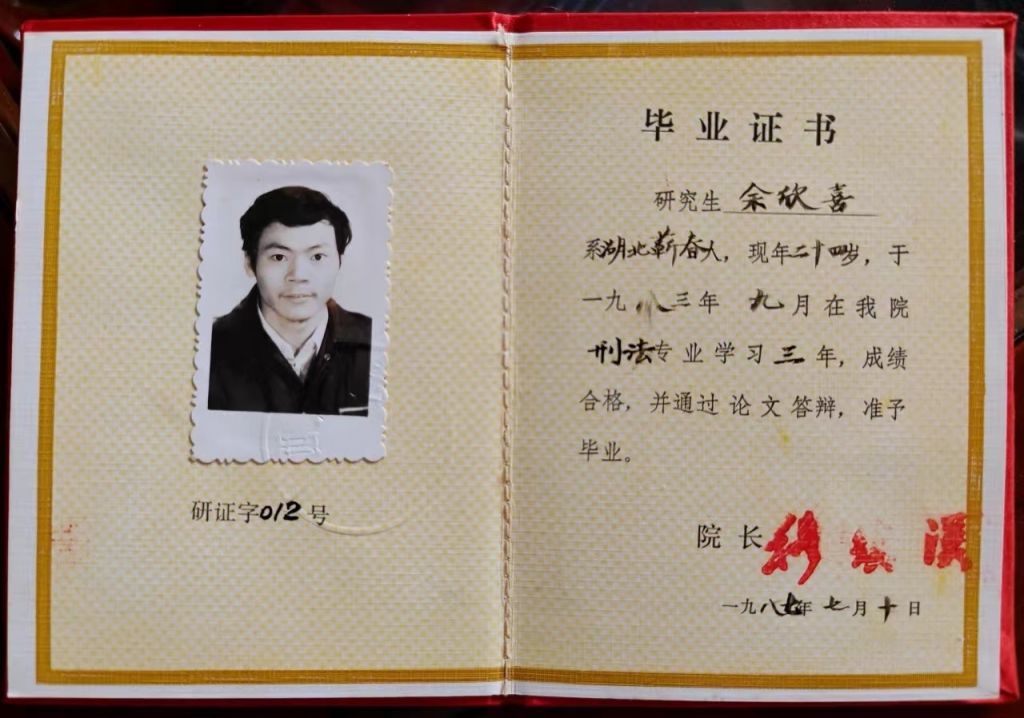 研证字012号
毕业证书
研究生 余欣喜
系湖北蕲春人，现年二十四岁，于
一九八三年 九月在我院
刑法专业学习三年，成绩
合格，并通过论文答辩，准予
毕业。
院长
一九八七年七月十日